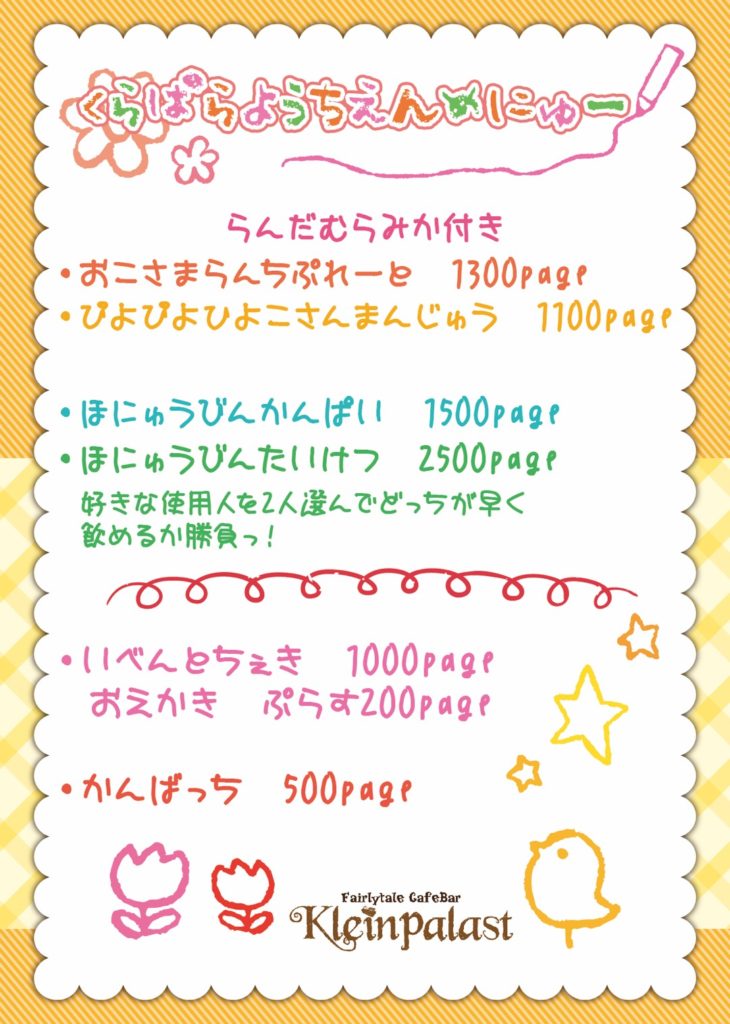 くらぱらようちえんめにゅー
らんだむらみか付き
・おこさまらんちぷれーと 1300page
・ぴよぴよひよこさんまんじゅう 1100page
・ほにゅうびんかんぱい 1500page
・ほにゅうびんたいけつ 2500page
好きな使用人を2人選んでどっちが早く
飲めるか勝負っ!
・いべんとちぇき 1000page
おえかき ぷらす200page
・かんばっち 500page
Fairlytale CafeBar
Kleinpalast